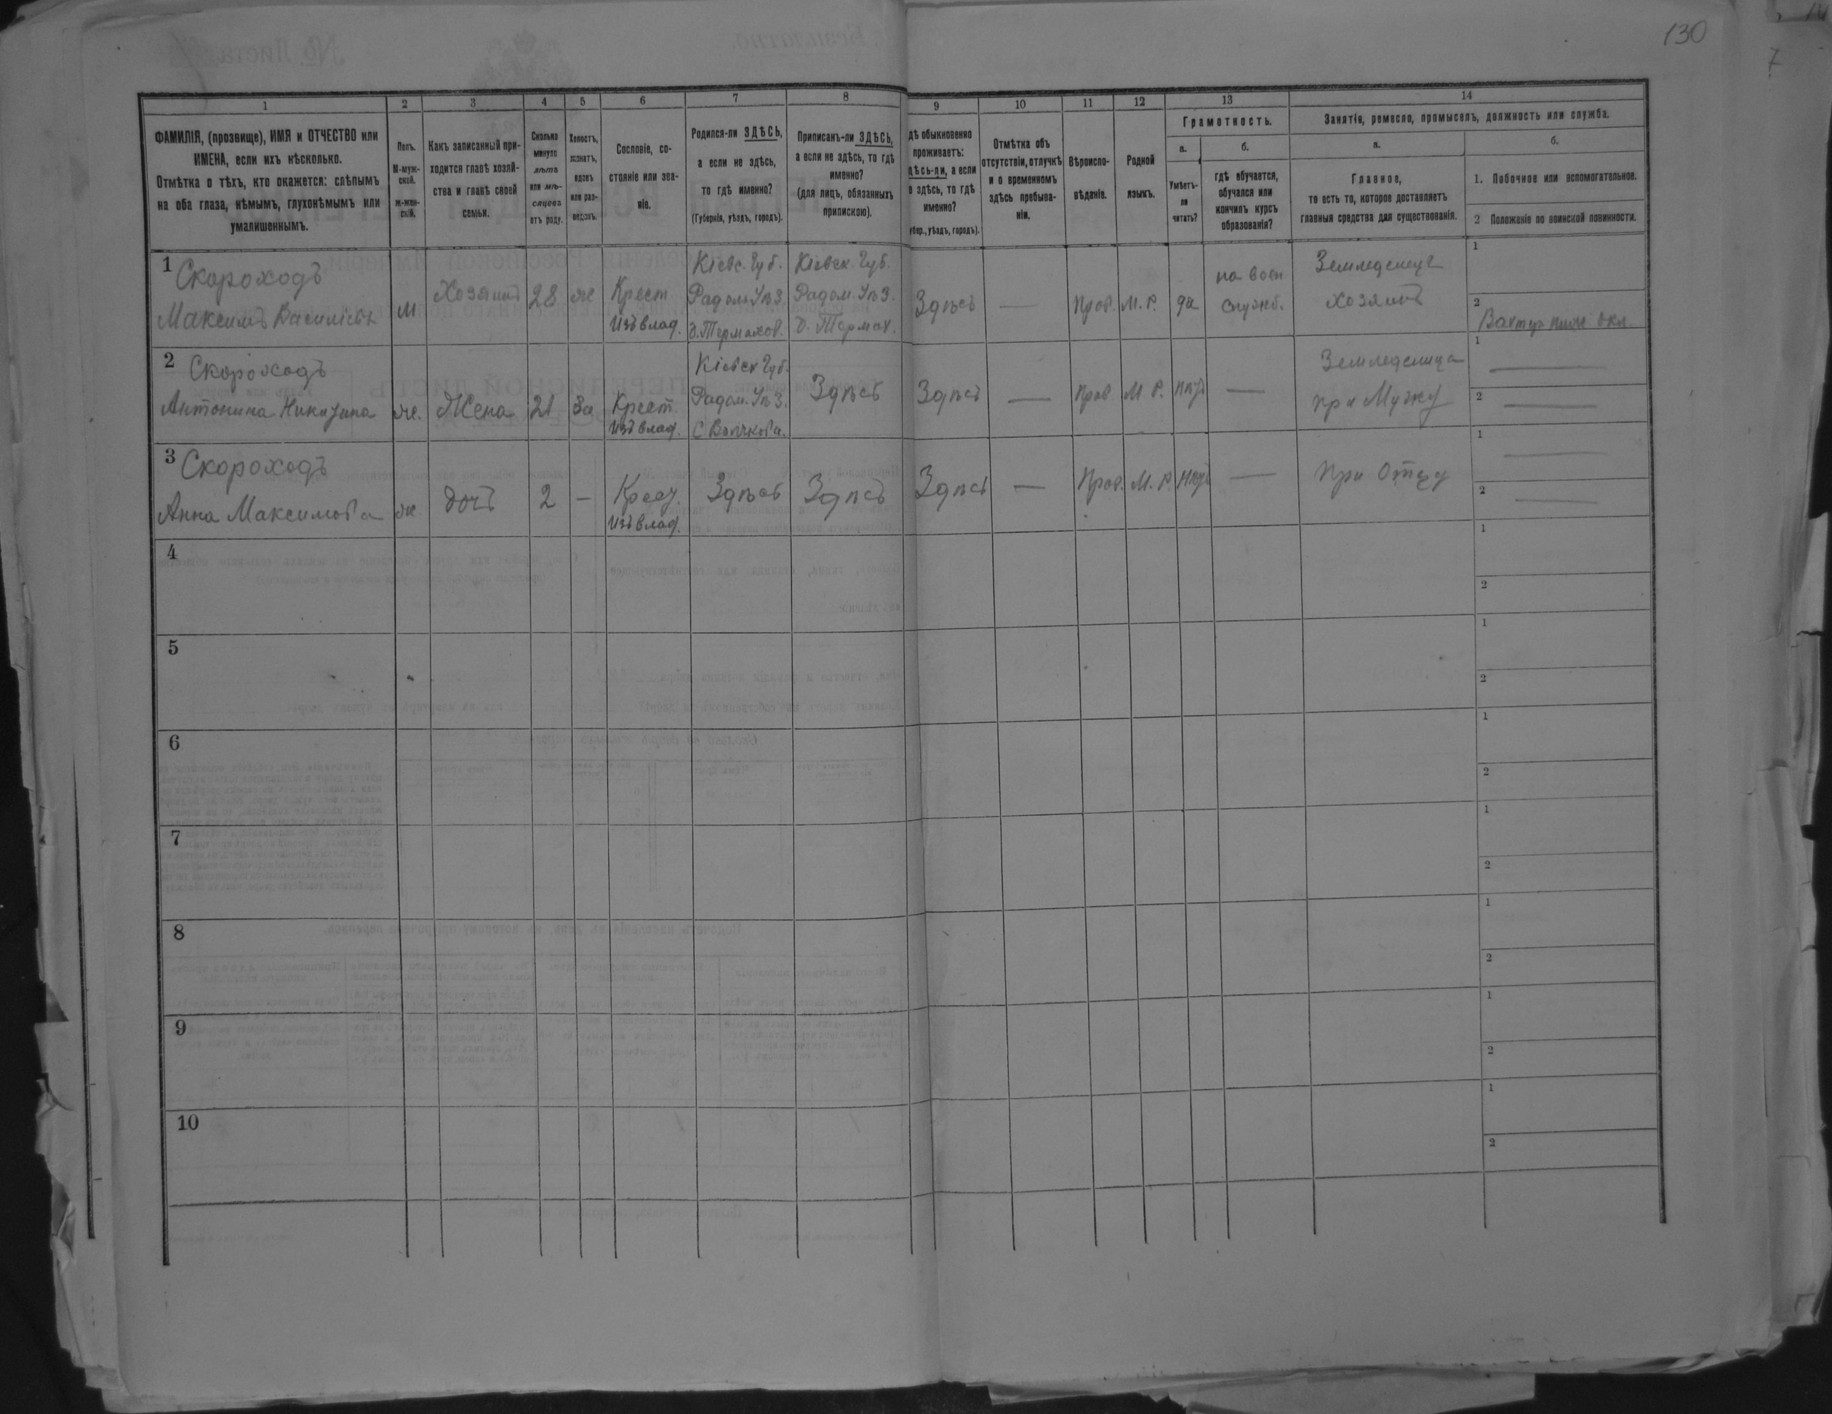 130
7
1
2
3
4
5
6
7
8
9
10
11
12
13
14
ФАМИЛІЯ, (прозвище), ИМЯ и ОТЧЕСТВО или
ИМЕНА, если ихъ нѣсколько.
Отмѣтка о тѣхъ, кто окажется: слѣпымъ
на оба глаза, нѣмымъ, глухонѣмымъ или
умалишеннымъ.
Полъ.
М-муж-
ской.
ж-жен-
скій.
Какъ записанный при-
ходится главѣ хозяй-
ства и главѣ своей
семьи.
Сколько
минуло
лѣтъ
или мѣ-
сяцевъ
отъ роду.
Холостъ,
женатъ,
вдовъ
или раз-
веденъ.
Сословіе, со-
стояніе или зва-
ніе.
Родился-ли ЗДѢСЬ,
а если не здѣсь,
то гдѣ именно?
(Губернія, уѣздъ, городъ).
Приписанъ-ли ЗДѢСЬ,
а если не здѣсь, то гдѣ
именно?
(для лицъ, обязанныхъ
припискою).
дѣ обыкновенно
проживаетъ:
здѣсь-ли, а если
не здѣсь, то гдѣ
именно?
губер., уѣздъ, городъ).
Отмѣтка объ
отсутствіи, отлучкѣ
и о временномъ
здѣсь пребыва-
ніи.
Вѣроиспо-
вѣданіе.
Родной
языкъ.
Грамотность.
а.
Умѣетъ-
ли
читать?
б.
гдѣ обучается,
обучался или
кончилъ курсъ
образованія?
Занятіе, ремесло, промыселъ, должность или служба.
а.
Главное,
то есть то, которое доставляетъ
главныя средства для существованія.
б.
1. Побочное или вспомогательное.
2 Положеніе по воинской повинности.
1 Скороходъ
Максимъ Василіевъ
м
Хозяинъ
28
же
Крест
Изъ влад.
Кіевс. Губ.
Радом. Уѣз.
д. Термахов.
Кіевск. Губ.
Радом. Уѣз.
д. Термах.
Здѣсь
—
Прав.
М. Р.
да
на воен
служб.
Земледелецъ
хозяинъ
1
2
2 Скороходъ
Антонина Никитина
же.
Жена
21
За
Крест.
Изъ влад.
Кіевск Губ.
Радом. Уѣз.
Здѣсь
Здѣсь
—
Прав
М. Р.
нѣтъ
—
Земледелица
при Мужу
1 —
2 —
3 Скороходъ
Анна Максимова
же
дочь
2
—
Крест.
Изъ влад.
Здѣсь
Здѣсь
Здѣсь
—
Прав.
М. Р.
нѣтъ
—
При Отцу
1 —
2 —
4
1
2
5
1
2
6
1
2
7
1
2
8
1
2
9
1
2
10
1
2